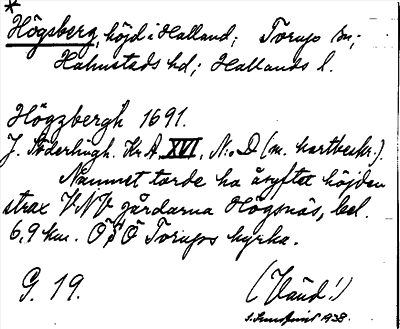 *
Högsberg, höjd i Halland; Torup sn;
Halmstads hd; Hallands l.
Högzbergh 1691.
J. Söderhiegh. Kr. A XVI, N:o D (m. kartbeskr.).
Namnet torde ha åsyftat höjden
strax VNV gårdarna Högsnäs, bel.
6,9 km. OSO Torups kyrka.
G. 19. (Vänd!)
1938.